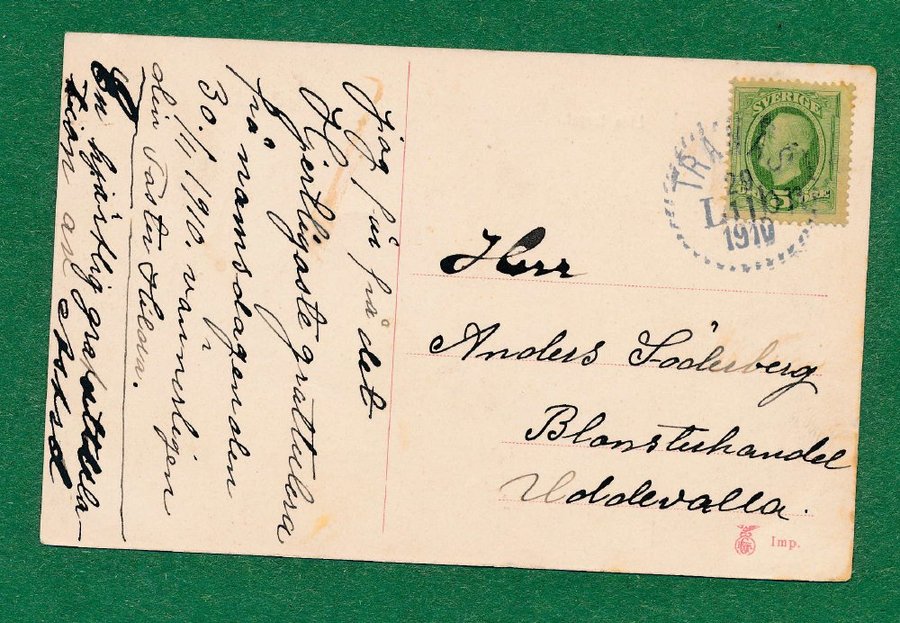 Jag får få det
Hjertligaste grattulera
på namnsdagen den
30./11/1910. vännerligen
din Faster Hilda.
En hjärtlig gratattula
tion av
SVERIGE
5 ÖRE
TRANÅS
29
1910
Herr
Anders Söderberg
Blomsterhandel
Uddevalla.
Imp.